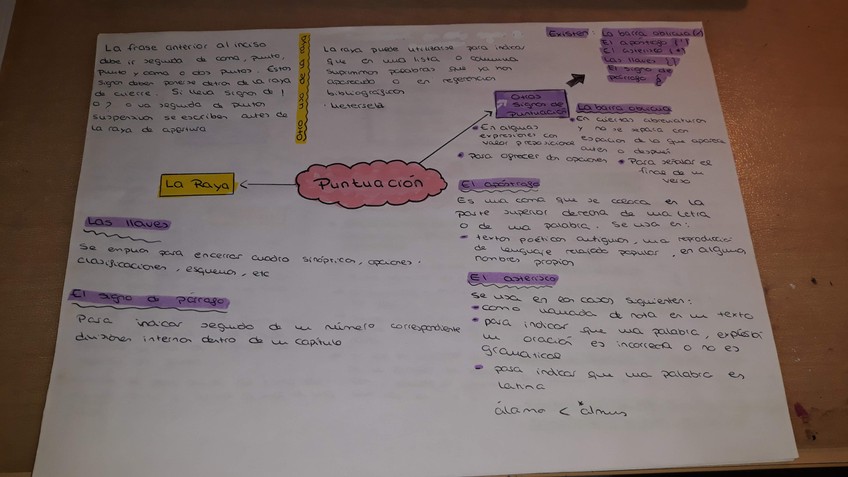 La frase anterior al inciso
debe ir seguido de coma, punto,
punto y coma o dos puntos. Estos
signos deben ponerse detrás de la raya
de cierre. Si lleva signos de !
o ? o va seguido de puntos
suspensivos se escriben antes de
la raya de apertura
Otro uso de la raya
La raya puede utilizarse para indicar
que en una lista o columna
suprimimos palabras que ya han
aparecido o en referencias
bibliográficas
Existen: La barra oblicua (/)
El apóstrofo (')
El asterisco (*)
Las llaves { }
El signo de
párrafo §
Otros
signos de
Puntuación
La barra oblicua
En algunas
expresiones con
valor preposicional
Para ofrecer dos opciones
En ciertas abreviaturas
y no se separa con
espacios de lo que aparece
antes o después
Para señalar el
final de un
verso
La Raya
Puntuación
El apóstrofo
Es una coma que se coloca en la
parte superior derecha de una letra
o de una palabra. Se usa en:
textos poéticos antiguos, una reproducció
de lenguaje relajado popular, en algunos
nombres propios
Las llaves
Se emplean para encerrar cuadro sinópticos, opciones.
clasificaciones, esquemas, etc
El signo de párrafo
Para indicar seguido de un número correspondiente
divisiones internas dentro de un capítulo
El asterisco
Se usa en los casos siguientes:
como llamada de nota en un texto
para indicar que una palabra, expresió
un oración es incorrecta o no es
gramatical
para indicar que una palabra es
latina
álamo < *almus